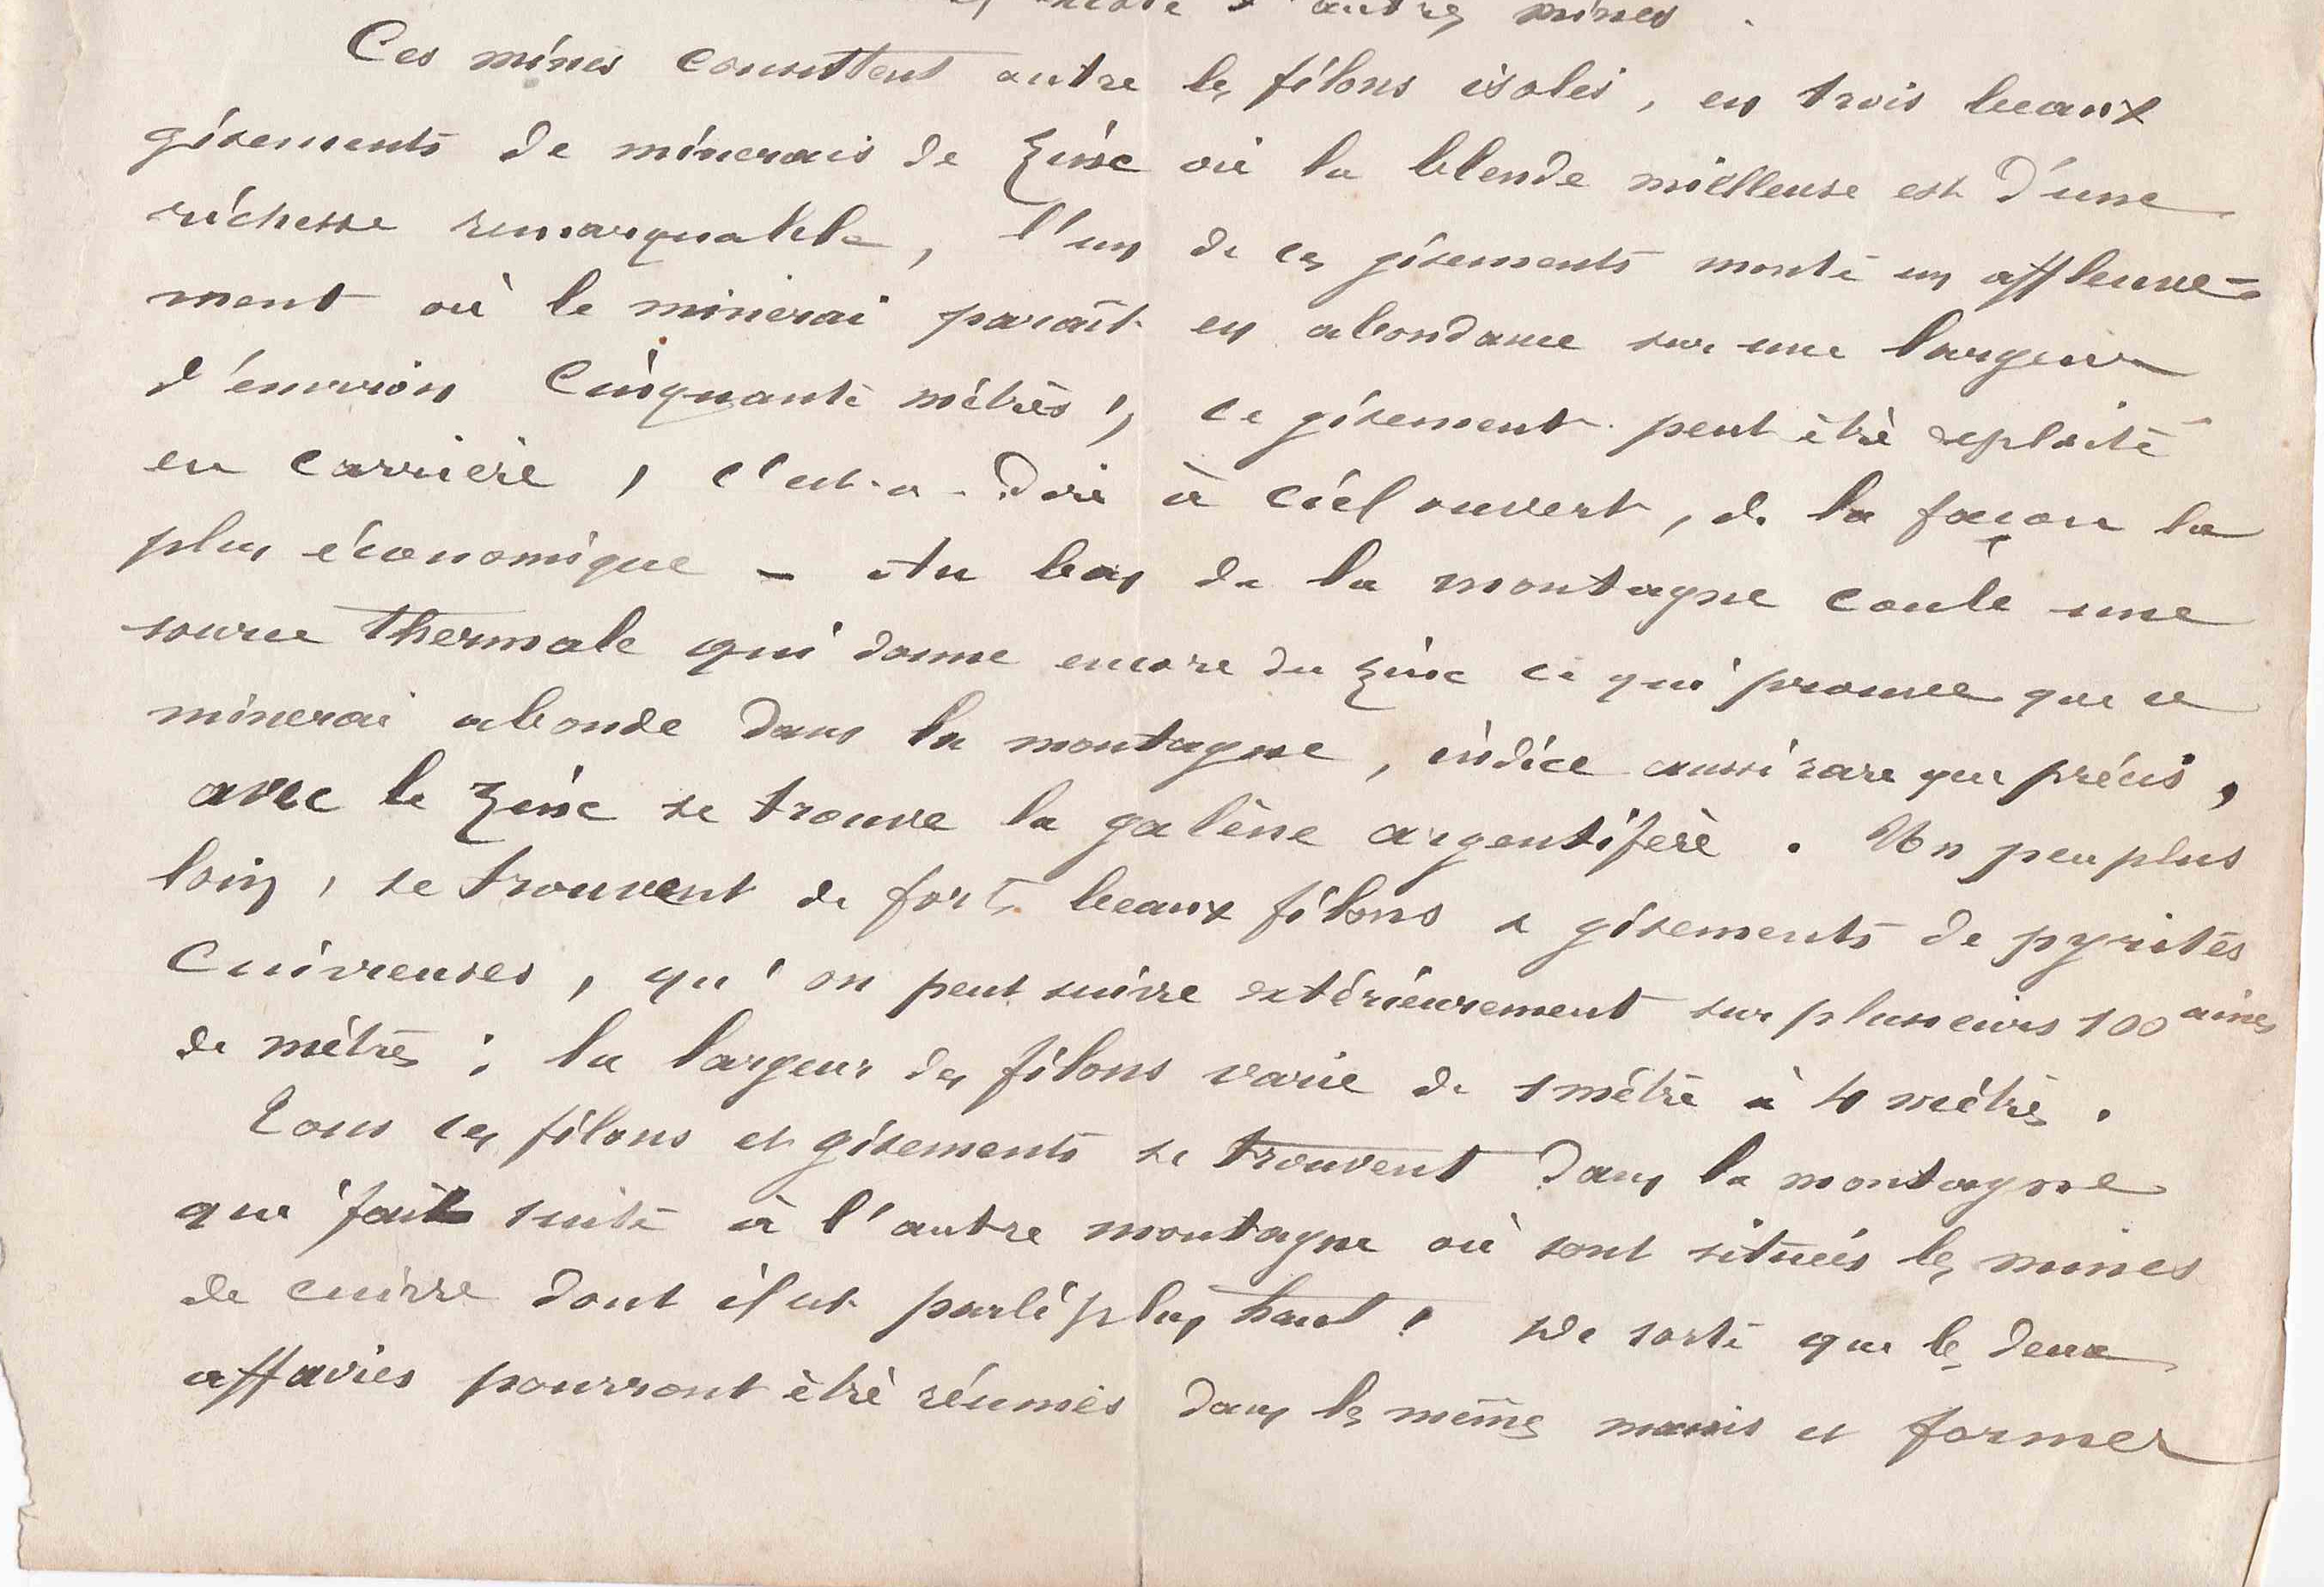 encore d'autres mines.
Ces mines consistent outre les filons isolés, en trois beaux
gisements de minerais de zinc où la blende mielleuse est d'une
richesse remarquable, l'un de ces gisements monte un affleure-
ment où le minerai paraît en abondance sur une largeur
d'environ Cinquante mètres; ce gisement peut être exploité
en carrière, c'est-a-dire à ciel ouvert, de la façon la
plus économique - Au bas de la montagne coule une
source thermale qui donne encore du zinc ce qui prouve que ce
minerai abonde dans la montagne, indice aussi rare que précis,
avec le zinc se trouve la galène argentifère. Un peu plus
loin, se trouvent de forts beaux filons & gisements de pyrites
Cuivreuses, qu'on peut suivre extérieurement sur plusieurs 100aines
de mètres; la largeur des filons varie de 1 mètre à 4 mètres.
Tous ces filons et gisements se trouvent dans la montagne
qui fait suite à l'autre montagne où sont situées les mines
de cuivre dont il est parlé plus haut! De sorte que les deux
affaires pourront être réunies dans les mêmes mains et former